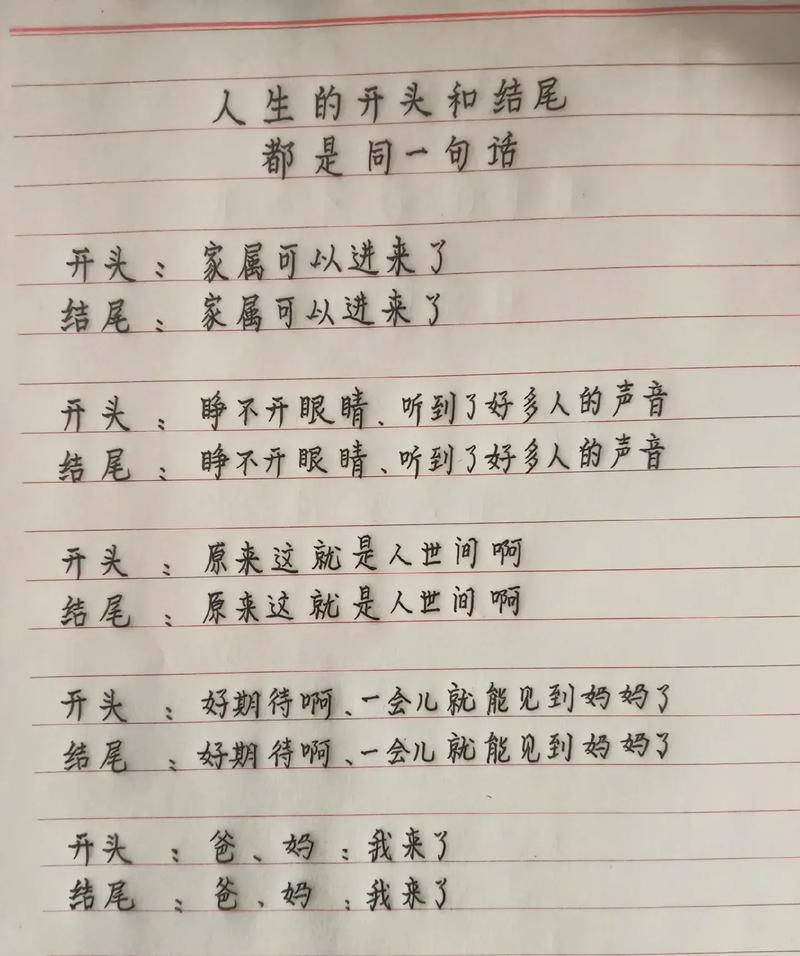 人生的开头和结尾
都是同一句话
开头：家属可以进来了
结尾：家属可以进来了
开头：睁不开眼睛、听到了好多人的声音
结尾：睁不开眼睛、听到了好多人的声音
开头：原来这就是人世间啊
结尾：原来这就是人世间啊
开头：好期待啊、一会儿就能见到妈妈了
结尾：好期待啊、一会儿就能见到妈妈了
开头：爸、妈：我来了
结尾：爸、妈：我来了